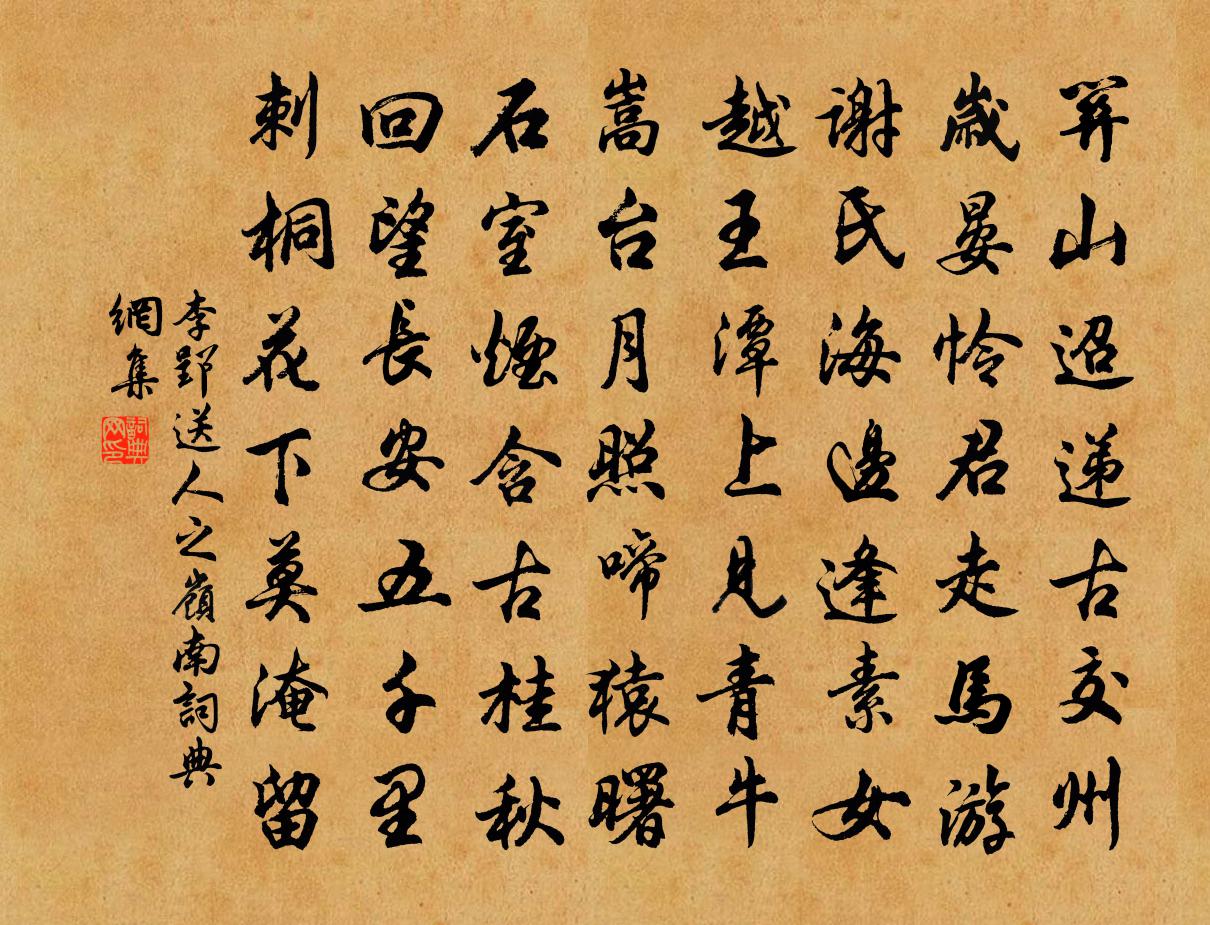 關山迢递古交州
歲晏怜君走馬游
謝氏海邊逢素女
越王潭上見青牛
嵩台月照啼猿曙
石室煙含古桂秋
回望長安五千里
刺桐花下莫淹留
李郢送人之嶺南詞典
網集
詞典
网印